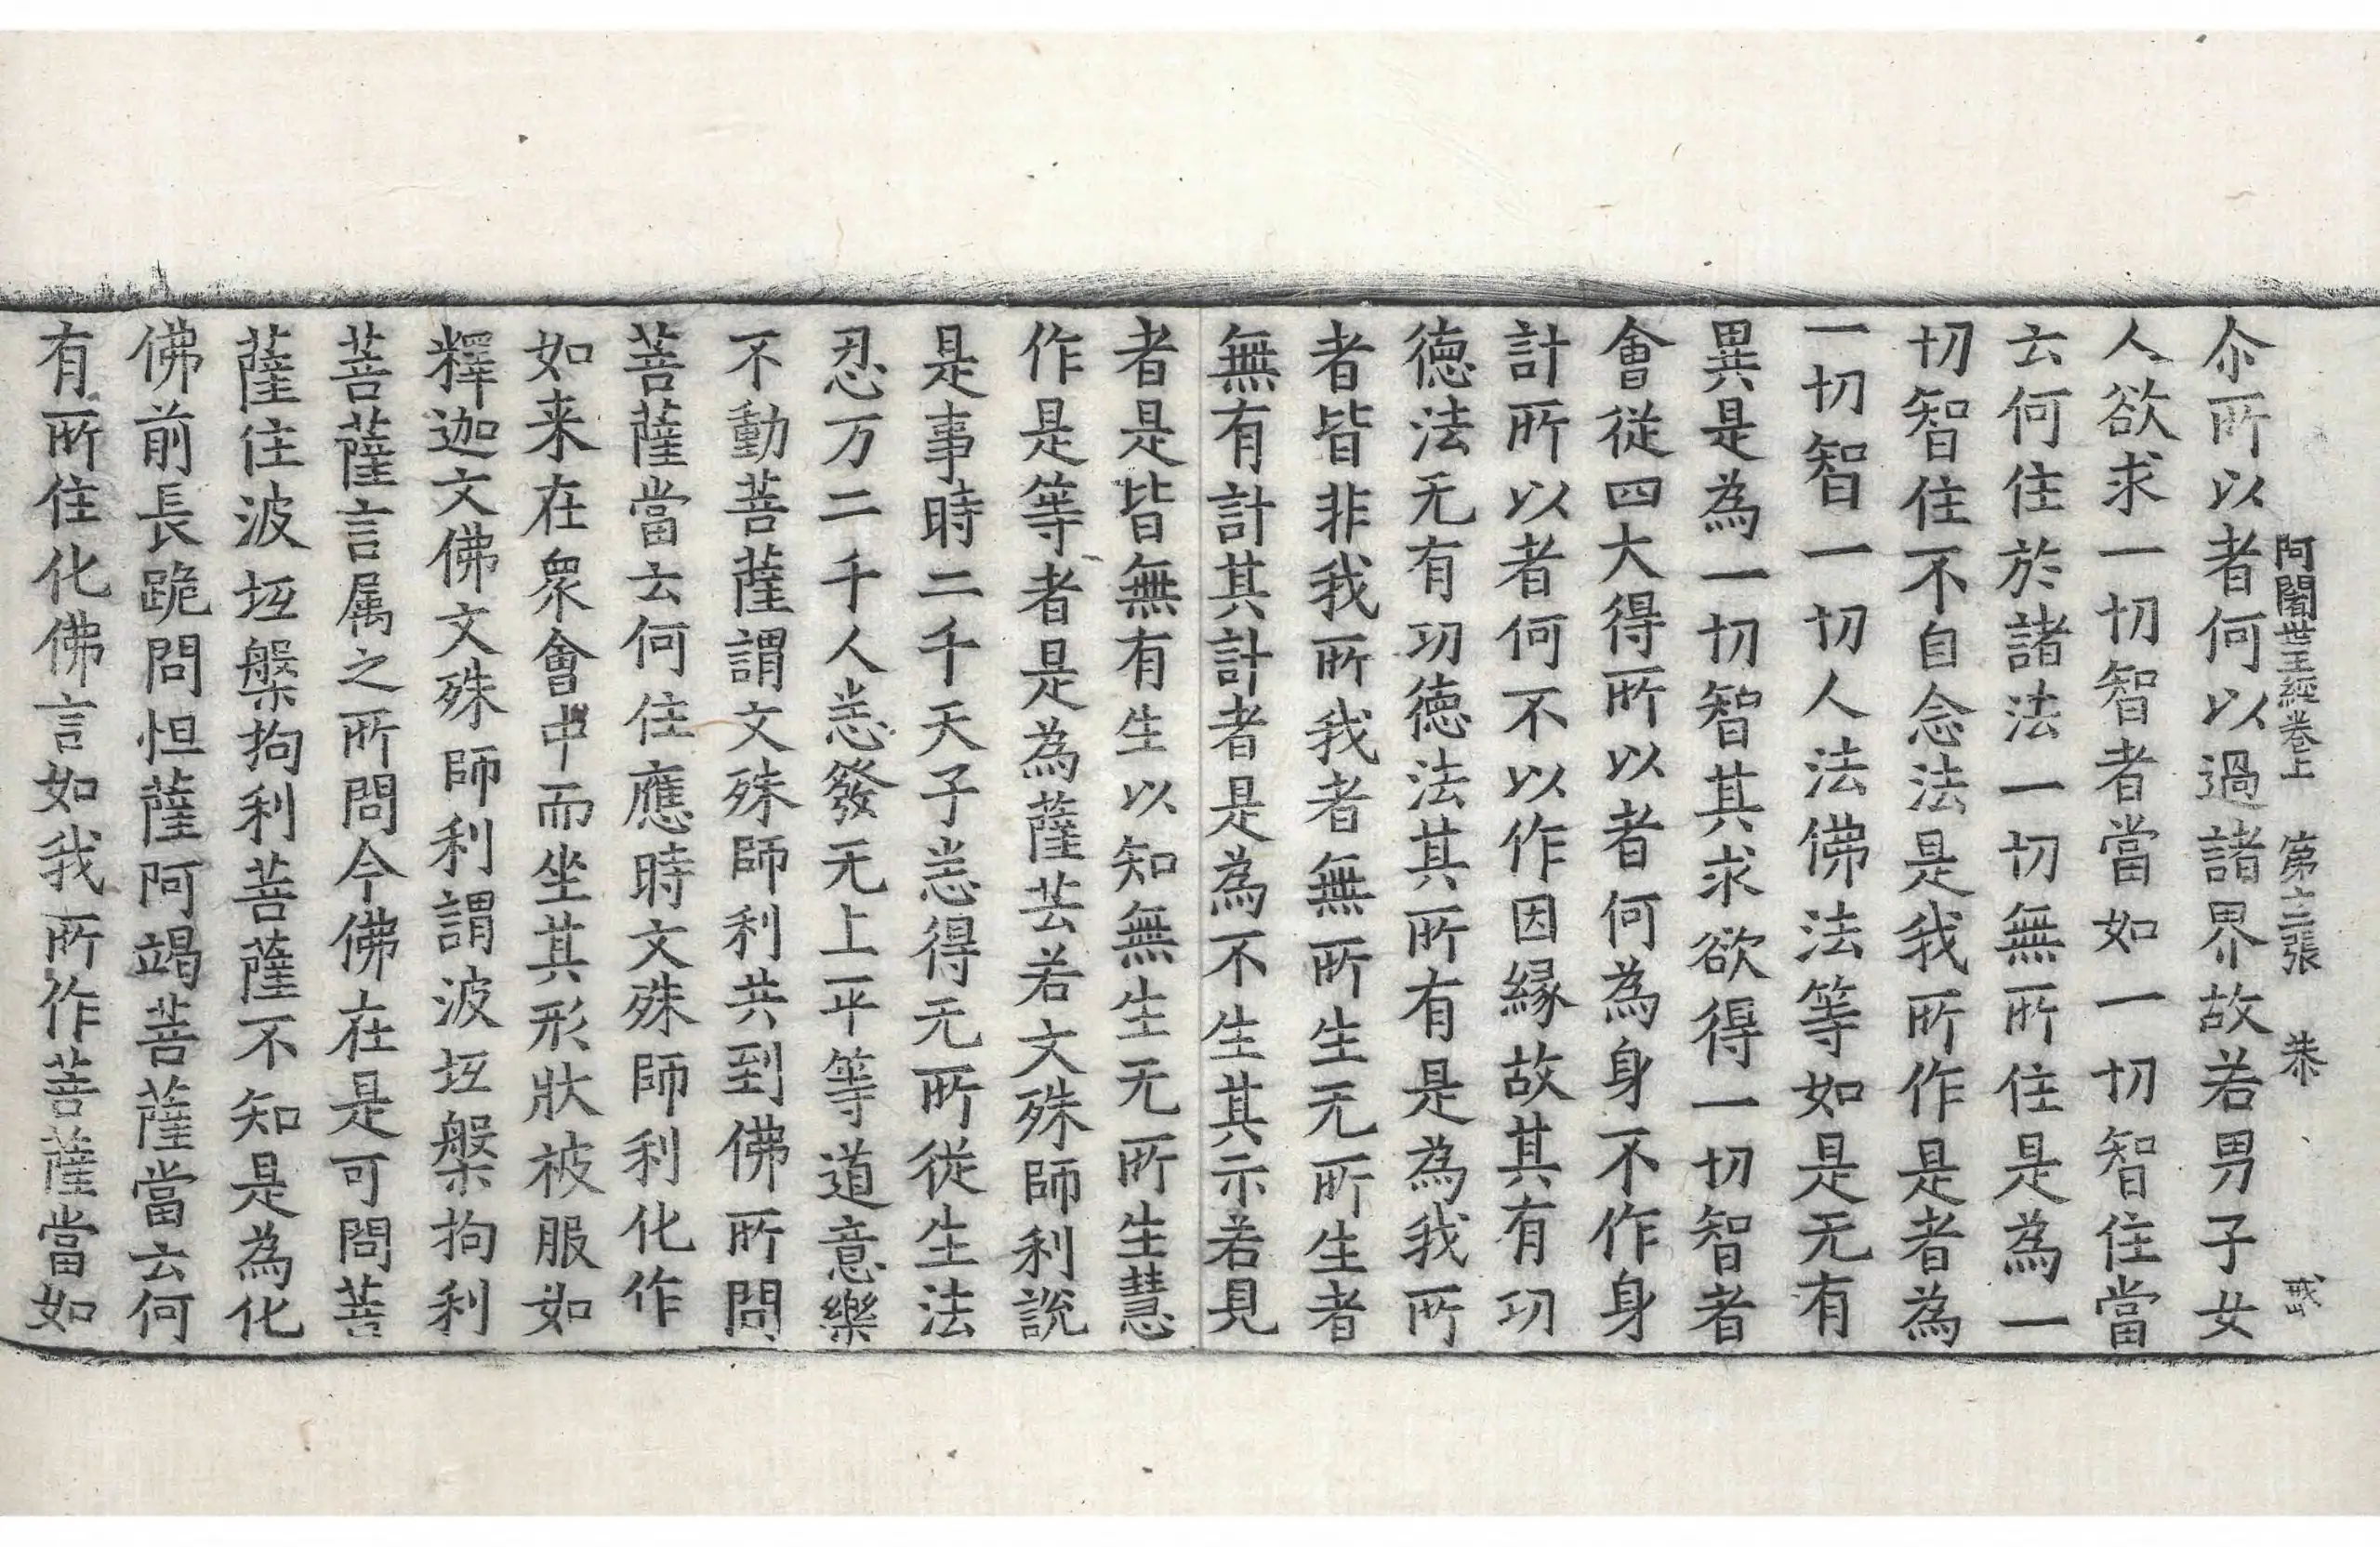 阿闍世王經卷上　第十三張　恭　戒
尒所以者何以過諸界故若男子女
人欲求一切智者當如一切智住當
云何住於諸法一切無所住是為一
切智住不自念法是我所作是者為
一切智一切人法佛法等如是无有
異是為一切智其求欲得一切智者
會從四大得所以者何為身不作身
計所以者何不以作因緣故其有功
德法无有功德法其所有是為我所
者皆非我所我者無所生无所生者
無有計其計者是為不生其示若見
者是皆無有生以知無生无所生慧
作是等者是為薩芸若文殊師利說
是事時二千天子悉得无所從生法
忍万二千人悉發无上平等道意樂
不動菩薩謂文殊師利共到佛所問
菩薩當云何住應時文殊師利化作
如来在衆會中而坐其形狀被服如
釋迦文佛文殊師利謂波坘槃拘利
菩薩言属之所問今佛在是可問菩
薩住波坘槃拘利菩薩不知是為化
佛前長跪問怛薩阿竭菩薩當云何
有所住化佛言如我所作菩薩當如